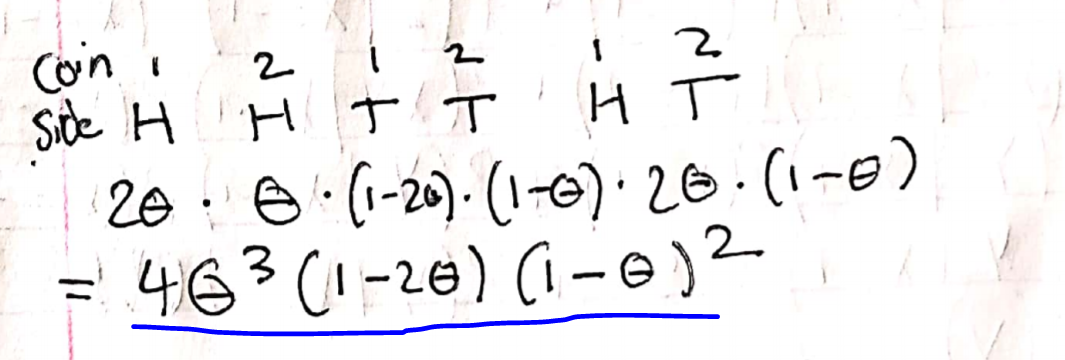 Coin 1 2 1 2 1 2
Side H H T T H T
2θ · θ · (1-2θ) · (1-θ) · 2θ · (1-θ)
= 4θ³ (1-2θ) (1-θ)²